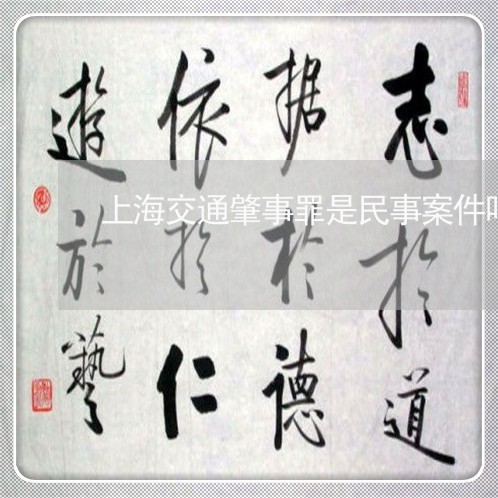 志於道
据於德
依於仁
遊於藝
上海交通肇事罪是民事案件吗